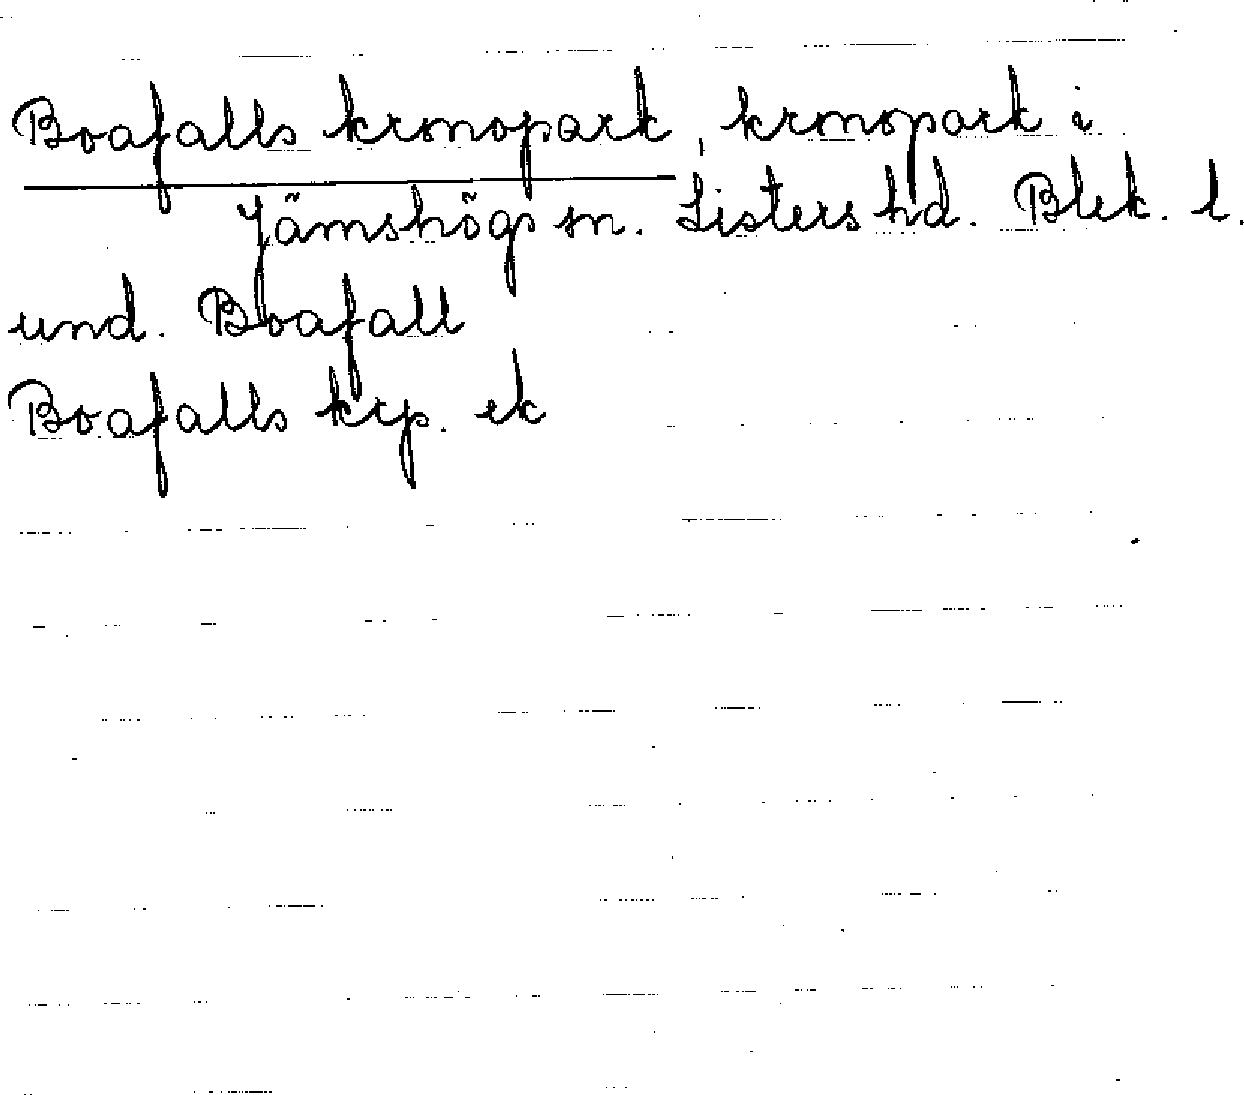 Boafalls kronopark, kronopark i
Jämshögs sn. Listers hd. Blek. l.
und. Boafall
Boafalls krp. ek